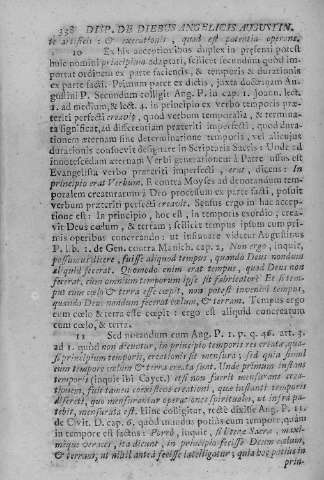 338 DISP. DE DIEBUS ANGELICIS AUGUSTIN.
te artificis : & executionis, quod est potentia operans.
10 Ex his acceptionibus duplex in præsenti potest
huic nomini principium adaptari, scilicet secundum quod im-
portat ordinem ex parte faciendi, & temporis & durationis
ex parte facti. Primum patet ex dictis, juxta doctrinam Au-
gustini P. Secundum colligit Ang. P. in cap. 1. Joann. lect.
1. ad medium, & lect. 4. in principio ex verbo temporis præ-
teriti perfecti creavit, quod verbum temporalia, & termina-
ta significat, ad differentiam præteriti imperfecti, quod dura-
tionem æternam sine determinatione temporis, vel alicujus
durationis consuevit designare in Scripturis Sacris : Unde ad
innotescendam æternam Verbi generationem à Patre usus est
Evangelista verbo præteriti imperfecti, erat, dicens : In
principio erat Verbum. E contra Moyses ad denotandum tem-
poralem creaturarum à Deo processum ex parte facti, posuit
verbum præteriti perfecti creavit. Sensus ergo in hac accep-
tione est : In principio, hoc est, in temporis exordio, crea-
vit Deus cœlum, & terram, scilicet tempus ipsum cum pri-
mis operibus concreando : ut insinuare videtur Augustinus
P. lib. 1. de Gen. contra Manich. cap. 2. Non ergo, inquit,
possumus dicere, fuisse aliquod tempus, quando Deus nondum
aliquid fecerat. Quomodo enim erat tempus, quod Deus non
fecerat, cum omnium temporum ipse sit fabricator? Et si tem-
pus cum cœlo & terra esse cœpit, non potest inveniri tempus,
quando Deus nondum fecerat cœlum, & terram. Tempus ergo
cum cœlo & terra esse cœpit : ergo est aliquid concreatum
cum cœlo, & terra.
11 Sed notandum cum Ang. P. 1. p. q. 46. art. 3.
ad 1. quod non dicuntur, in principio temporis res creatæ, qua-
si principium temporis, creationis sit mensura ; sed quia simul
cum tempore cœlum & terra creata sunt. Unde primum instans
temporis (inquit ibi Cayet.) etsi non fuerit mensurans crea-
tionem, fuit tamen connexum creationi, quæ instanti temporis
discreti, quo mensurantur operationes spirituales, ut infra pa-
tebit, mensurata est. Hinc colligitur, recte dixisse Ang. P. 11.
de Civit. D. cap. 6. quod mundus potius cum tempore, quam
in tempore est factus : Porrò, inquit, si Literæ Sacræ, maxi-
meque veraces, ita dicunt, in principio fecisse Deum cœlum,
& terram, ut nihil anteà fecisse intelligatur ; quia hoc potius in
prin-